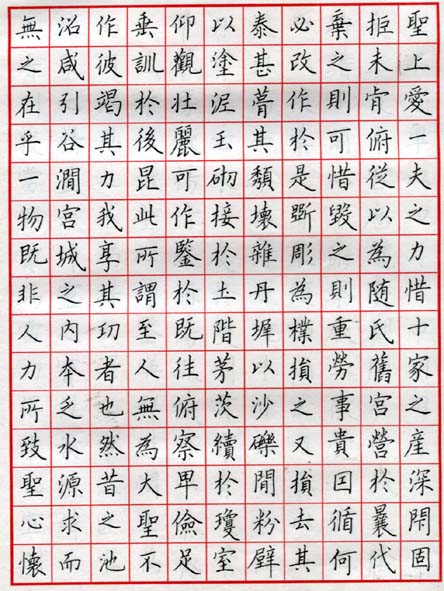 聖上愛一夫之力惜十家之産深閇固
拒未肯俯從以為随氏舊宮營於曩代
棄之則可惜毀之則重勞事貴囙循何
必改作於是斲彫為樸損之又損去其
泰甚葺其頽壞雜丹墀以沙礫間粉壁
以塗泥玉砌接於土階茅茨續於瓊室
仰觀壯麗可作鑒於既往俯察卑儉足
垂訓於後昆此所謂至人無為大聖不
作彼竭其力我享其㓛者也然昔之池
沼咸引谷澗宮城之内夲乏水源求而
無之在乎一物既非人力所致聖心懷